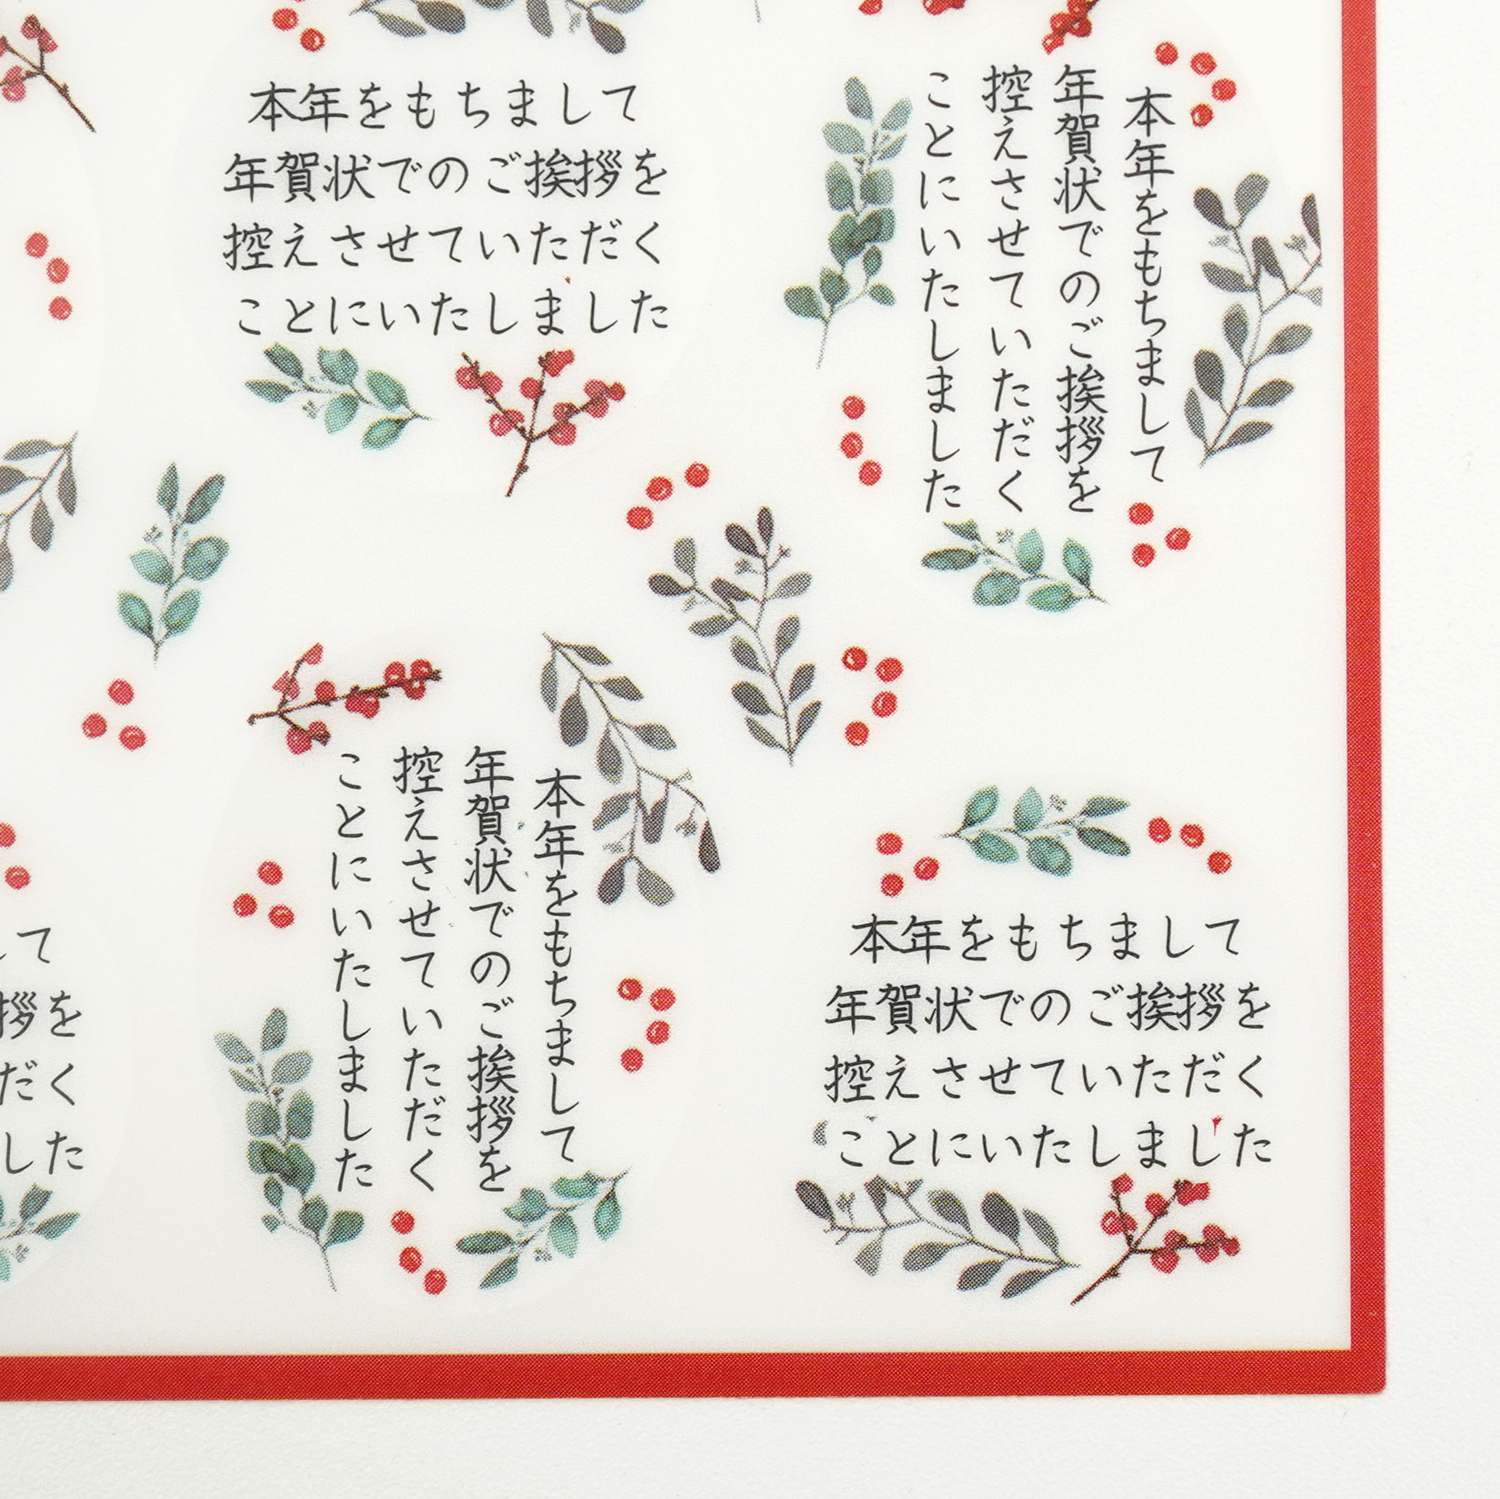 本年をもちまして
年賀状でのご挨拶を
控えさせていただく
ことにいたしました
本年をもちまして
年賀状でのご挨拶を
控えさせていただく
ことにいたしました
して
拶を
だく
した
本年をもちまして
年賀状でのご挨拶を
控えさせていただく
ことにいたしました
本年をもちまして
年賀状でのご挨拶を
控えさせていただく
ことにいたしました